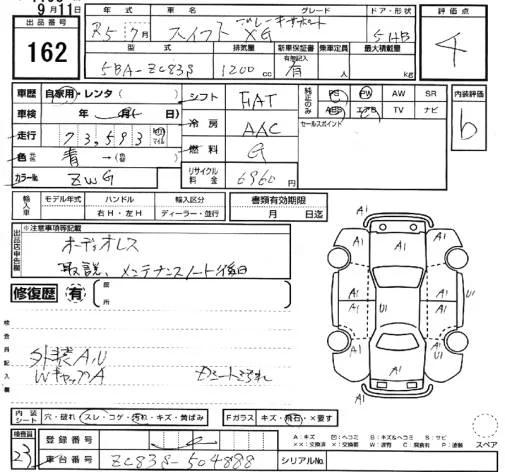 9月11日
出品番号
162
年式 車名 グレード ドア・形状
R5 7月 スイフト XG 5HB
ブレーキサポート
型式 排気量 新車保証書 乗車定員 最大積載量
有無記入
5BA-ZC83S 1200cc 有 人 kg
評価点
4
車歴 自家用・レンタ( )
車検 年 月( 日)
走行 73,593
色 青 →(色替 )
カラーNo. ZWG
シフト FAT
冷房 AAC
燃料 G
リサイクル料金 6960円
純正のみ
PS PW AW SR
ABS エアB TV ナビ
セールスポイント
内装評価
b
輸入車 モデル年式 ハンドル 輸入区分
年 右H・左H ディーラー・並行
書類有効期限
月 日迄
出品店申告欄
※注意事項等記載
オーディオレス
取説、メンテナンスノート後日
修復歴 有
箇所
検査員記入欄
外装A,U
WキャップA
シートスレ
A1
A1 A1 A1
A1 A1 A1
A1 U1 U1
A1
A1
内装シート 穴・破れ スレ・コゲ・汚れ・キズ・黄ばみ
Fガラス キズ・飛石・×要す
検査員
23
登録番号
車台番号 ZC83S-504888
シリアルNo.
A:キズ U:ヘコミ B:キズ&ヘコミ S:サビ
××:交換済 ×:要交換 W:波有 C:腐食有 P:塗装
スペア